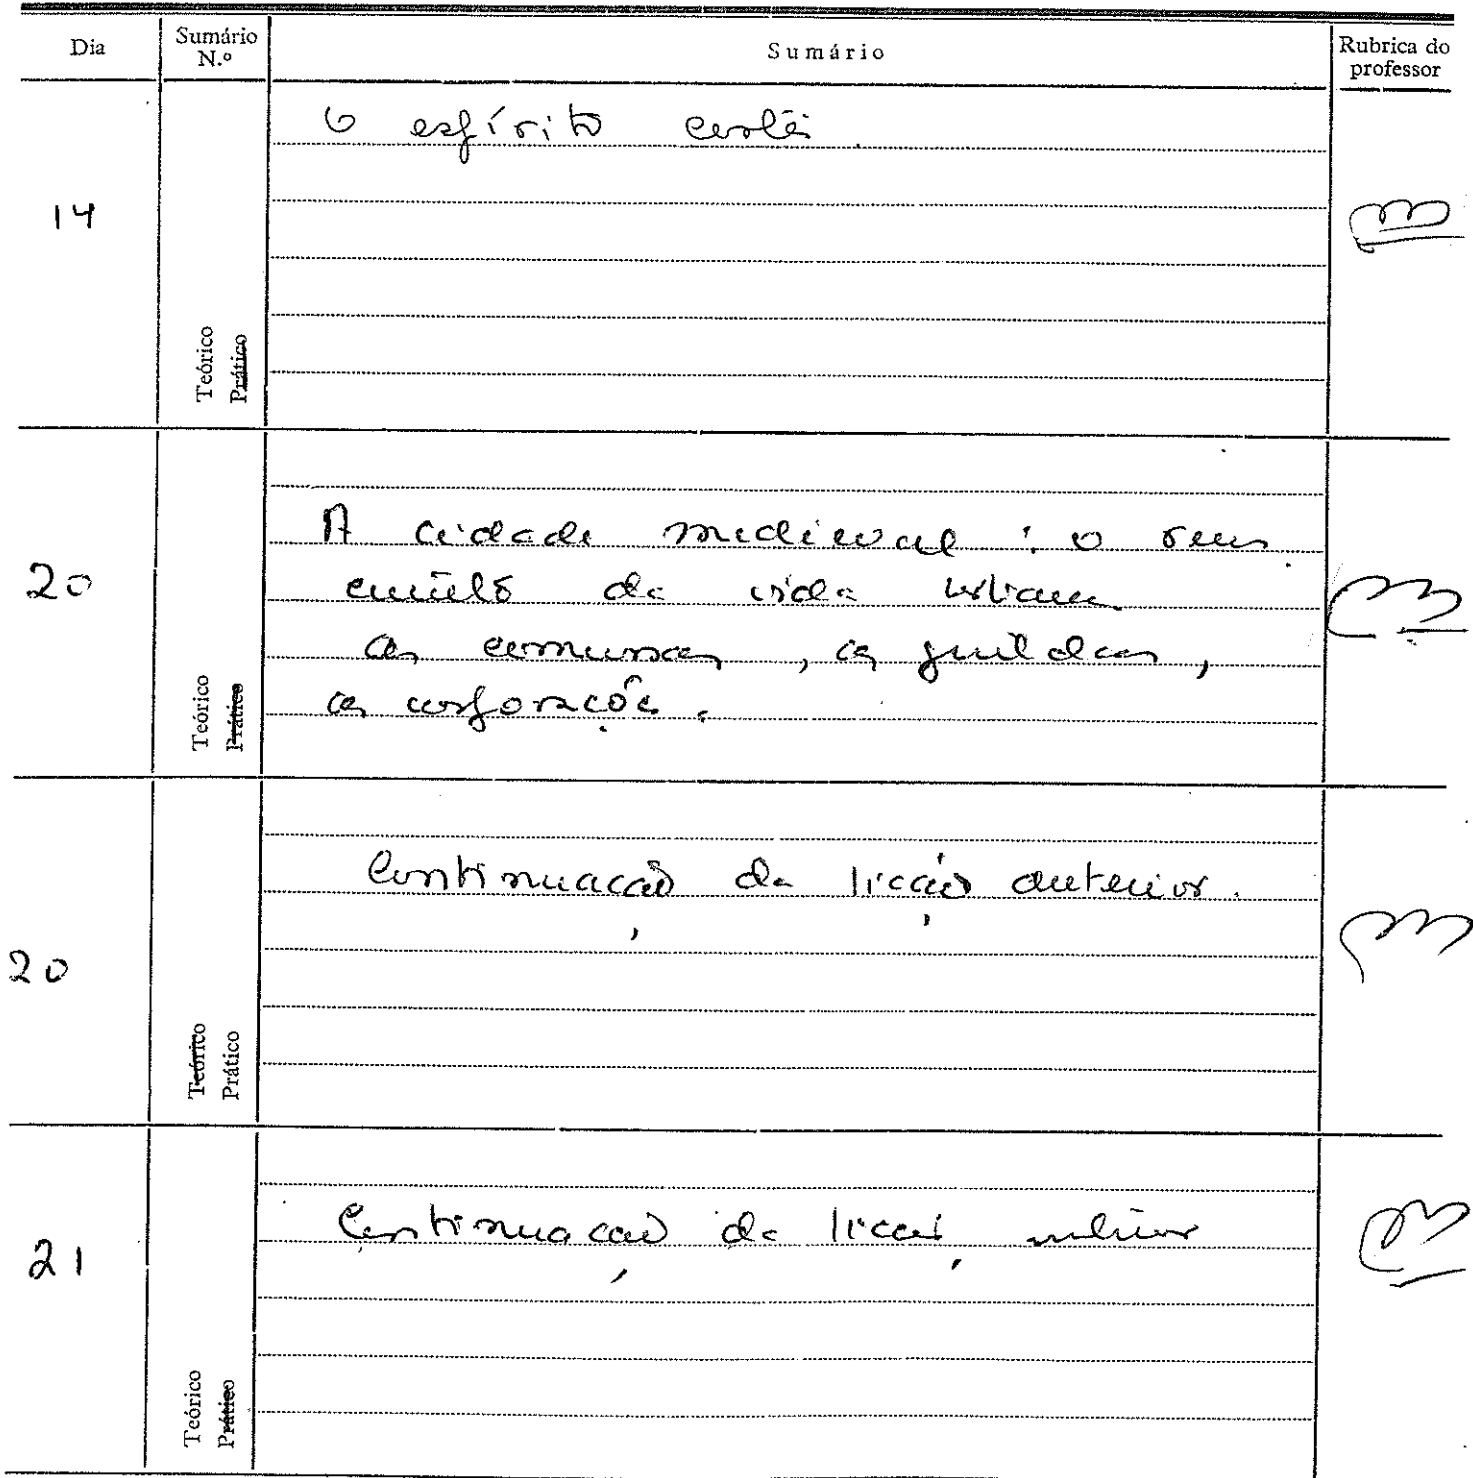 Dia
Sumário N.º
Sumário
Rubrica do professor
14
Teórico
Prático
O espírito cortês.
20
Teórico
Prático
A cidade medieval: o
da vida urbana
as comunas, as guildas,
as corporações.
20
Teórico
Prático
Continuação da lição anterior.
21
Teórico
Prático
Continuação da lição anterior